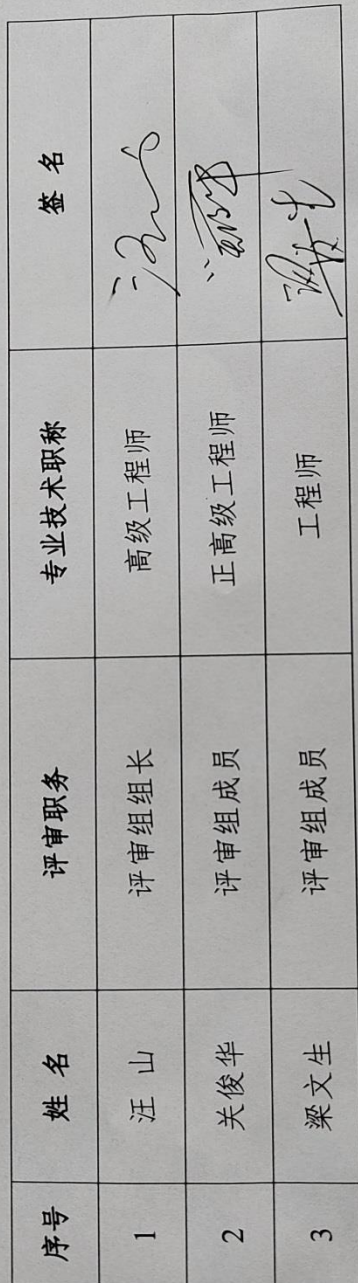 序号 姓名 评审职务 专业技术职称 签名
1 汪山 评审组组长 高级工程师
2 关俊华 评审组成员 正高级工程师
3 梁文生 评审组成员 工程师